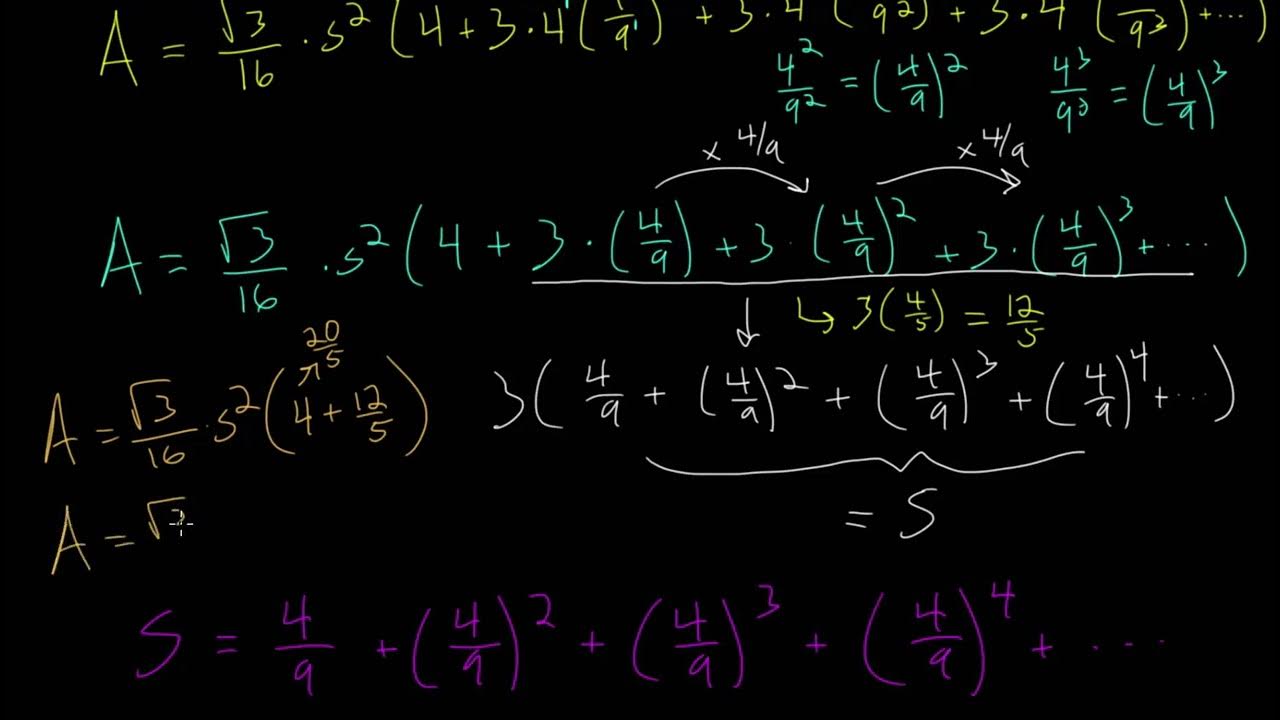 A = √3/16 · s² (4 + 3·4¹(1/9¹) + 3·4 ( 9²) + 3·4 ( 9³) + ···)
4²/9² = (4/9)² 4³/9³ = (4/9)³
× 4/9 × 4/9
A = √3/16 · s² (4 + 3 · (4/9) + 3 · (4/9)² + 3 · (4/9)³ + ····)
↳ 3(4/5) = 12/5
20/5
A = √3/16 · s² (4 + 12/5) 3( 4/9 + (4/9)² + (4/9)³ + (4/9)⁴ + ···)
= S
A = √3
S = 4/9 + (4/9)² + (4/9)³ + (4/9)⁴ + ····